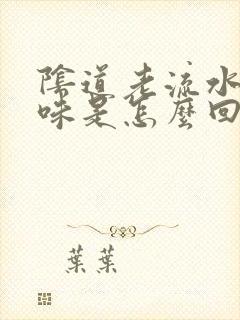 陰道老流水
味是怎麼回
葉葉